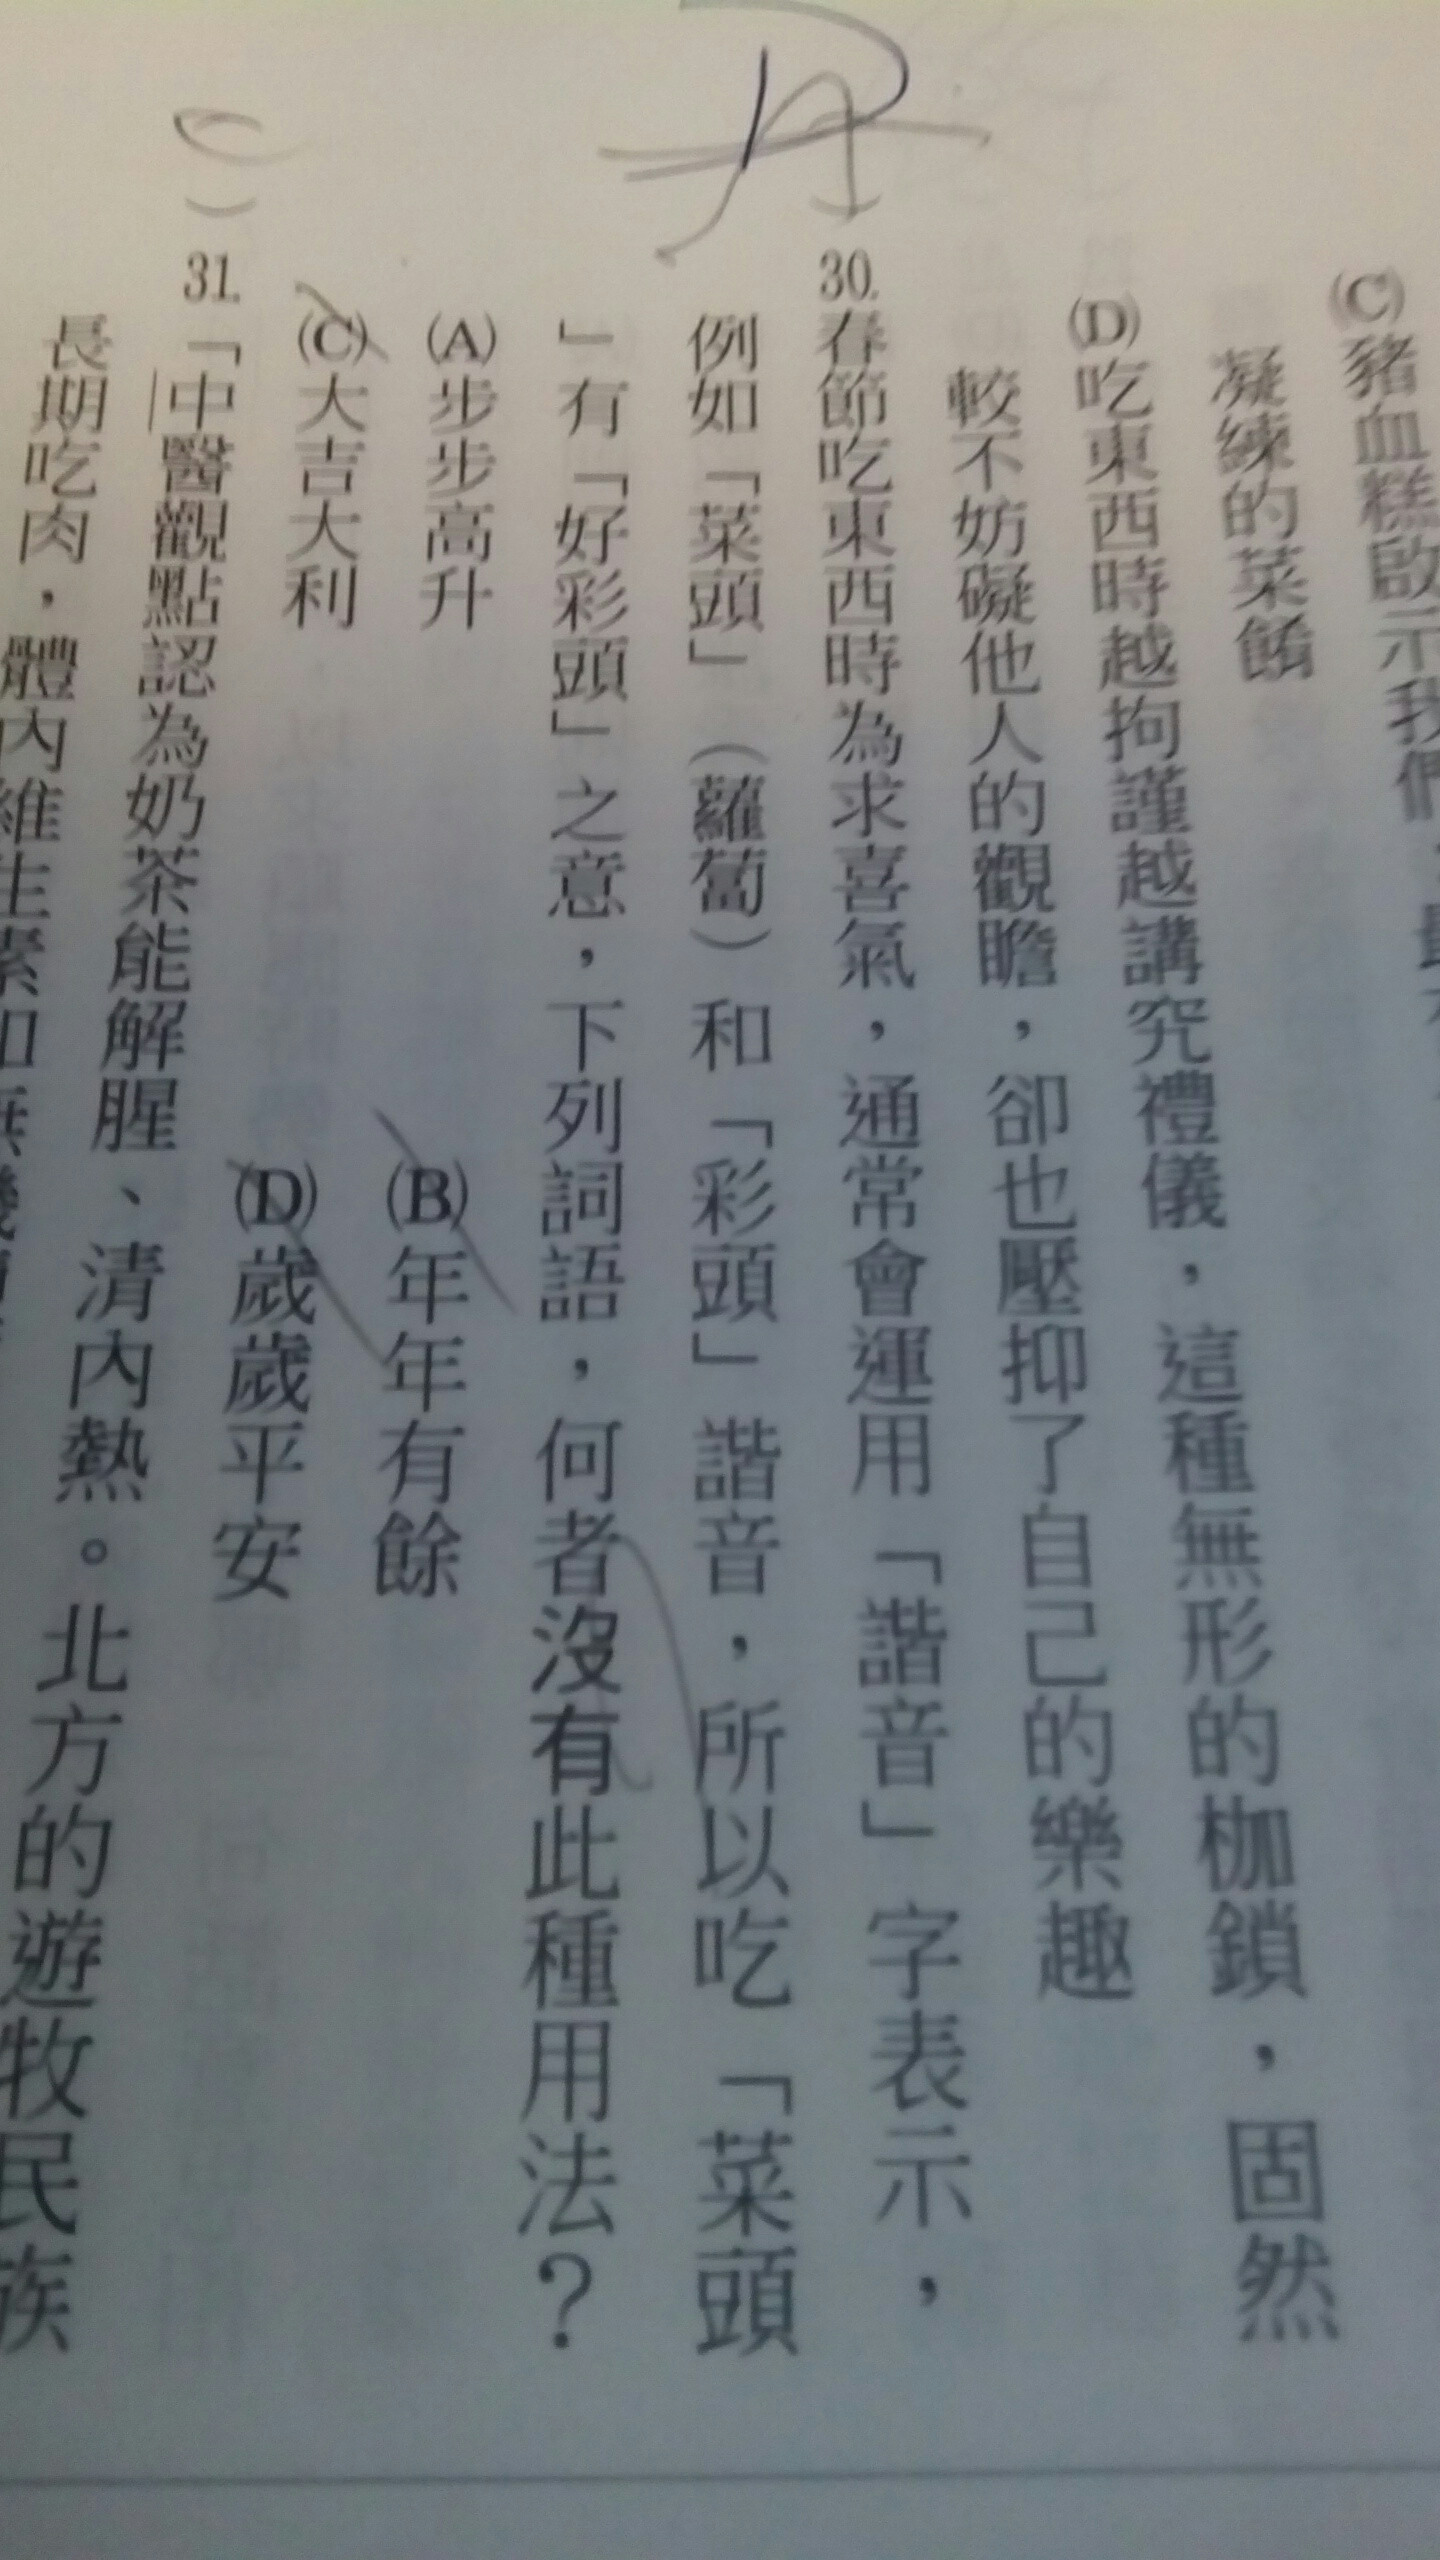 (C)豬血糕啟示我們，
凝練的菜餚
(D)吃東西時越拘謹越講究禮儀，這種無形的枷鎖，固然
較不妨礙他人的觀瞻，卻也壓抑了自己的樂趣
30.春節吃東西時為求喜氣，通常會運用「諧音」字表示，
例如「菜頭」（蘿蔔）和「彩頭」諧音，所以吃「菜頭
」有「好彩頭」之意，下列詞語，何者沒有此種用法？
(A)步步高升
(B)年年有餘
(C)大吉大利
(D)歲歲平安
31.「中醫觀點認為奶茶能解腥、清內熱。北方的遊牧民族
長期吃肉，體內維生素和無機